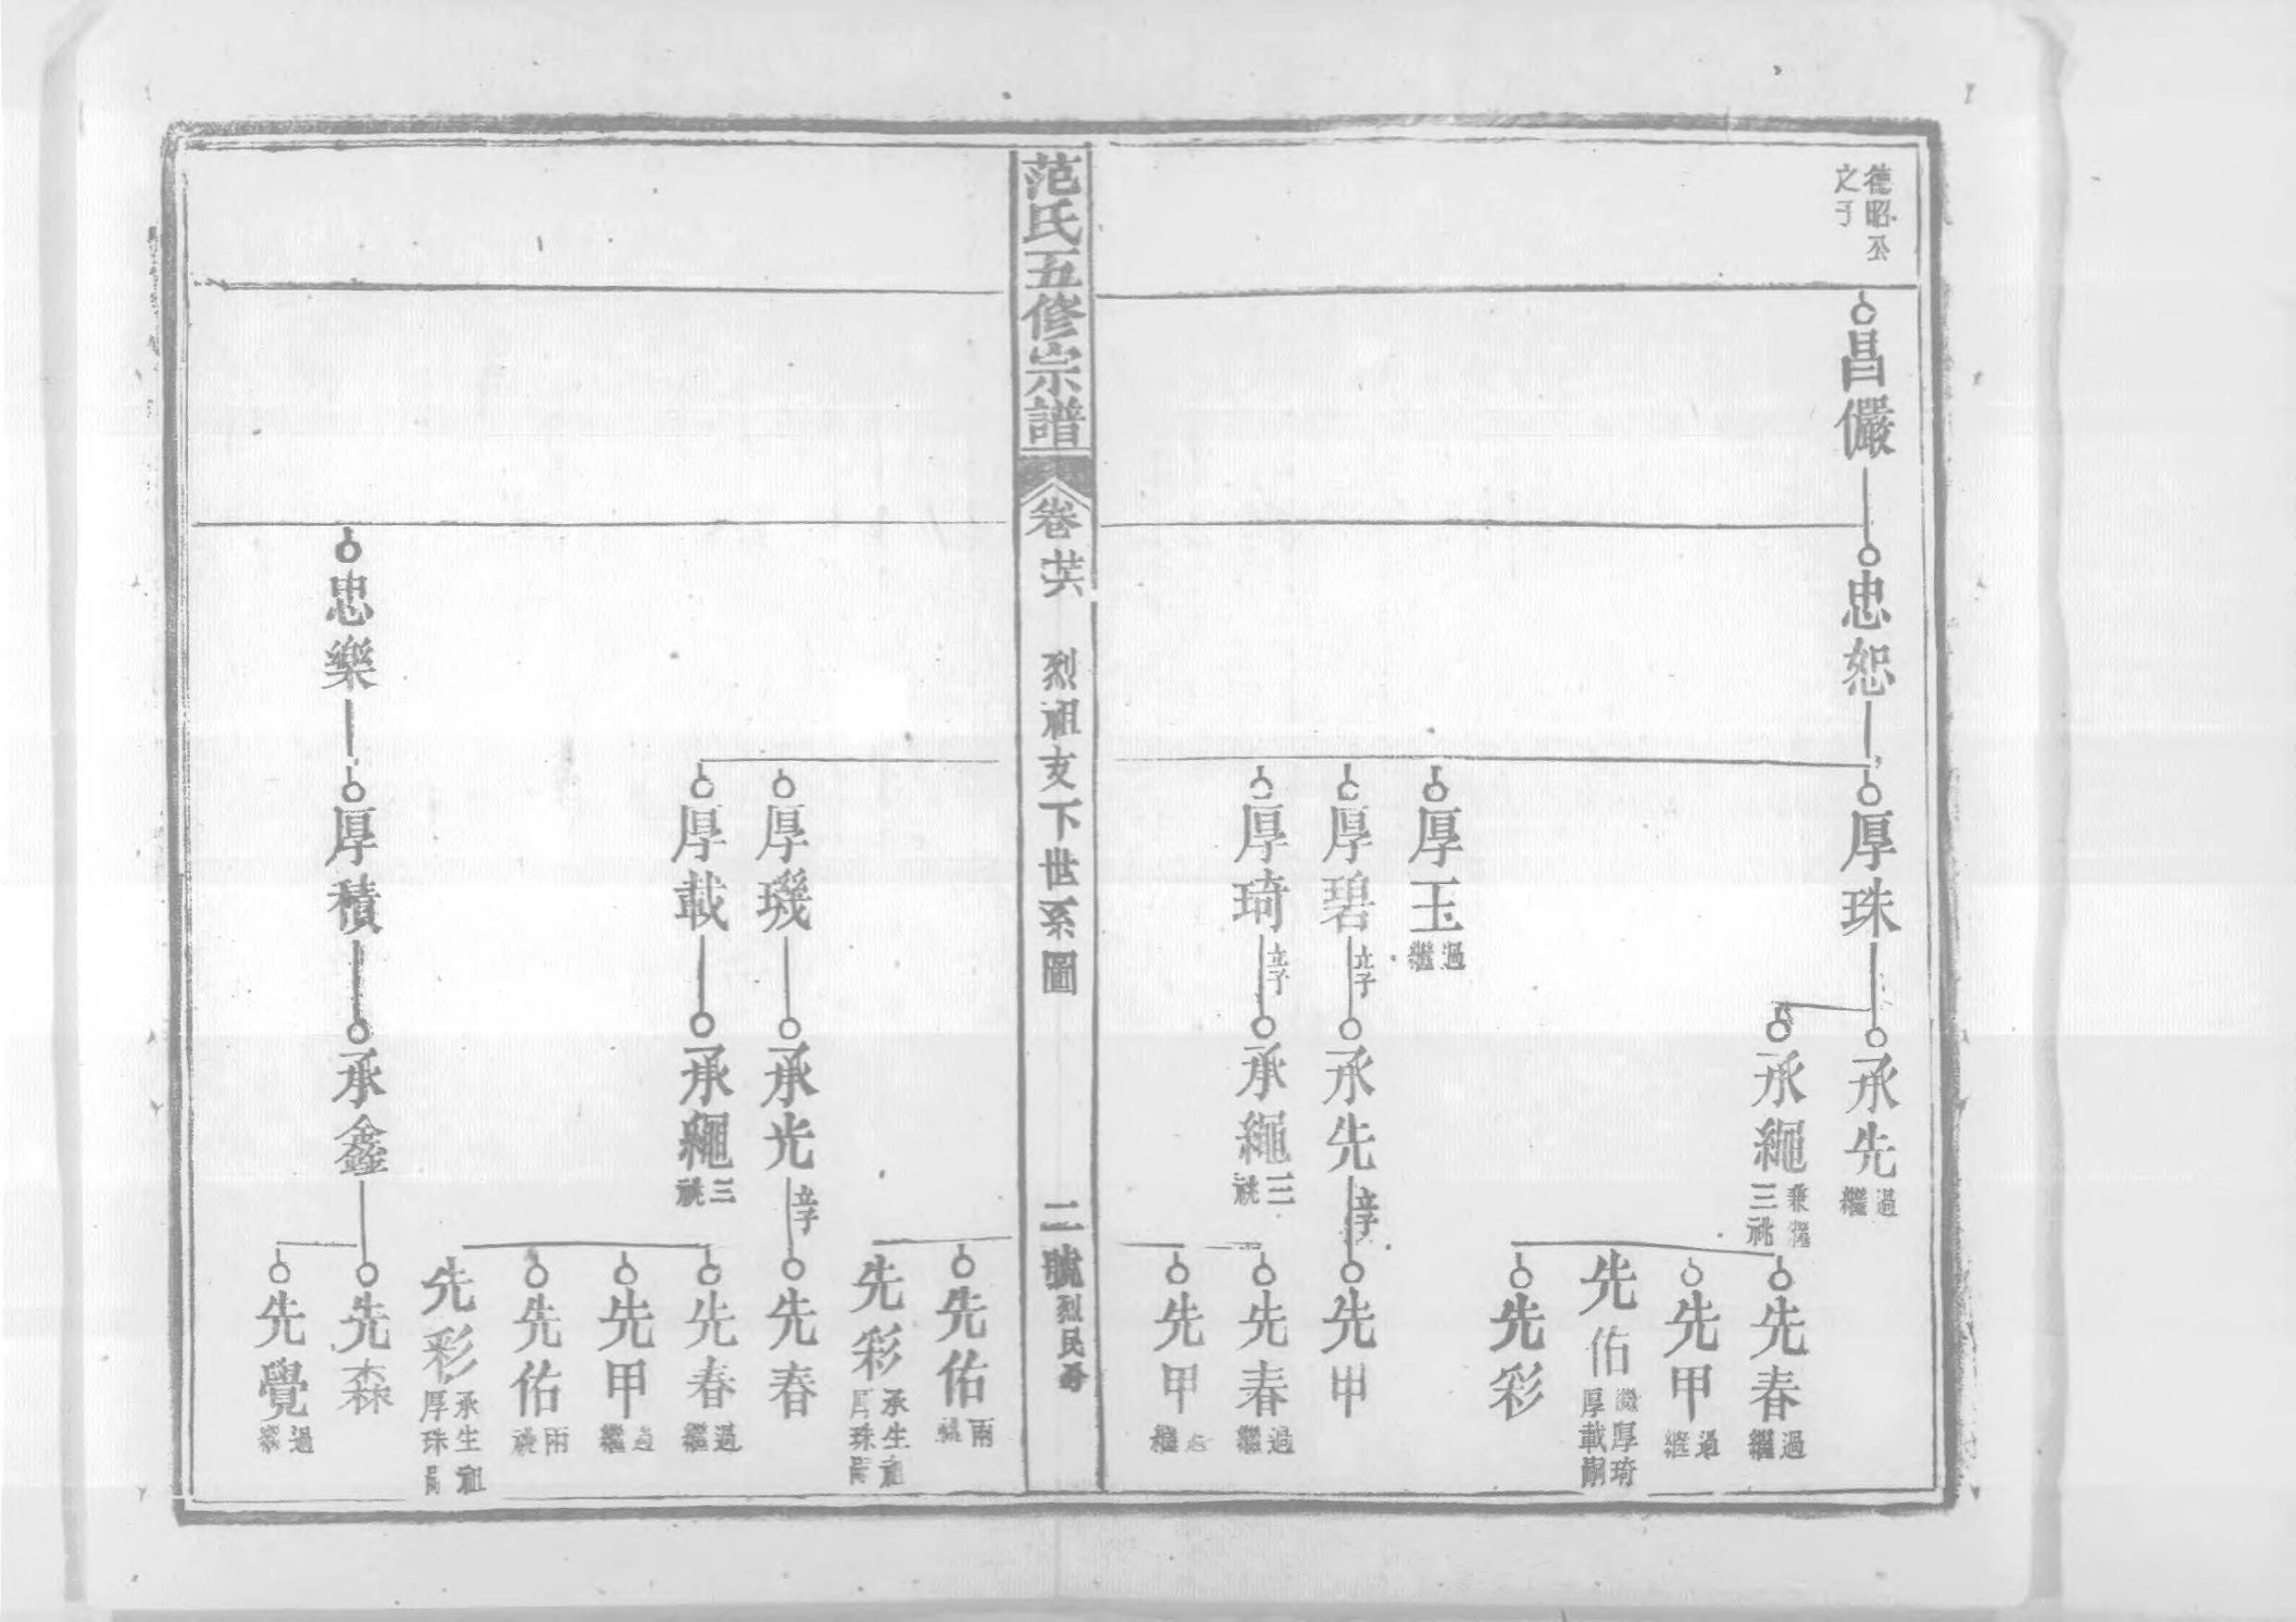 德昭公
之子
昌儼
忠恕
厚珠
承先
過繼
承繩
兼繼
三祧
先春
過繼
先甲
過繼
先佑
繼厚琦
厚載嗣
先彩
厚玉
過繼
厚碧
立子
承先
立子
先甲
厚琦
立子
承繩
三祧
先春
過繼
先甲
過繼
范氏五修宗譜
卷共
烈祖支下世系圖
二號
先佑
兩祧
先彩
承生祖
厚珠嗣
厚璣
承光
立子
先春
厚載
承繩
三祧
先春
過繼
先甲
過繼
先佑
兩祧
先彩
承生祖
厚珠嗣
忠樂
厚積
承鑫
先森
先覺
過繼